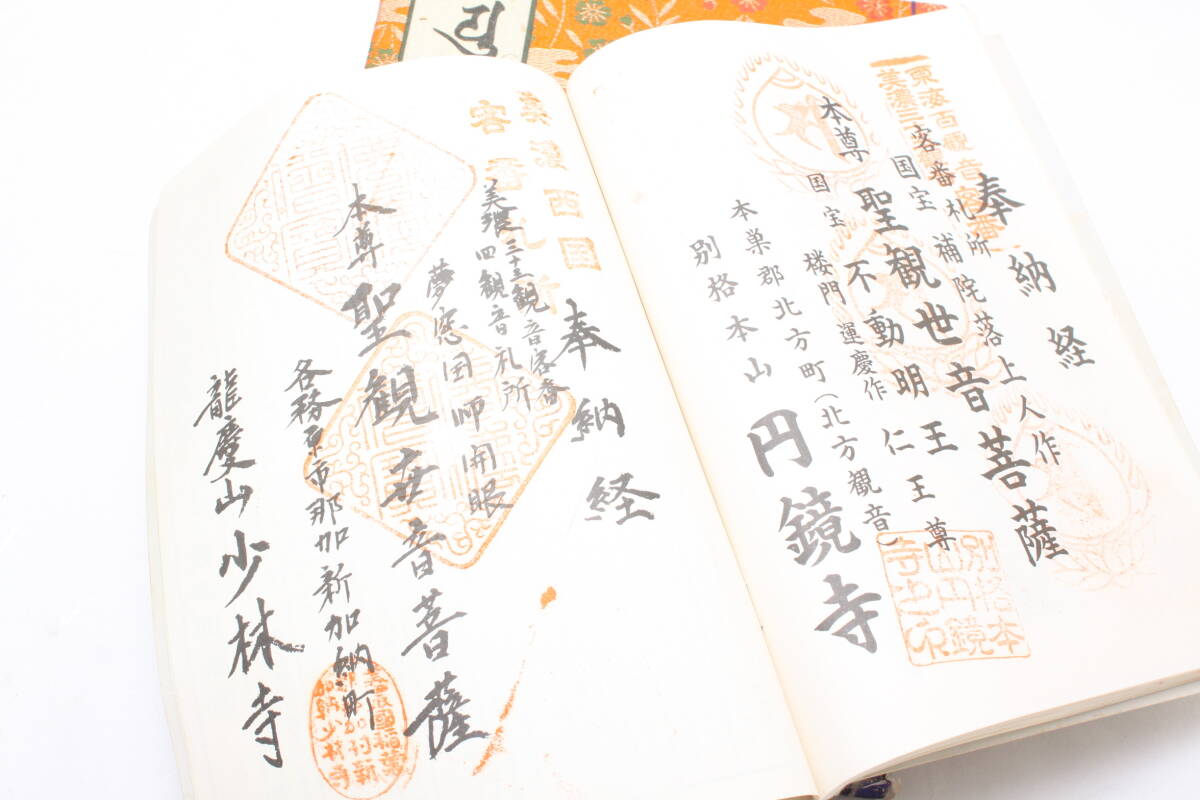 奉納経
客番札所 補院落上人作
国宝
聖観世音菩薩
不動明王
仁王尊
国宝 楼門 運慶作
本尊
本巣郡北方町(北方観音)
別格本山 円鏡寺
別格本
山円鏡
寺之印
東海百観音客番
美濃三
奉納経
美濃三十三観音客番
美濃四観音札所
夢窓国師開眼
本尊 聖観世音菩薩
各務原市那加新加納町
龍慶山少林寺
美濃西国
客番札所